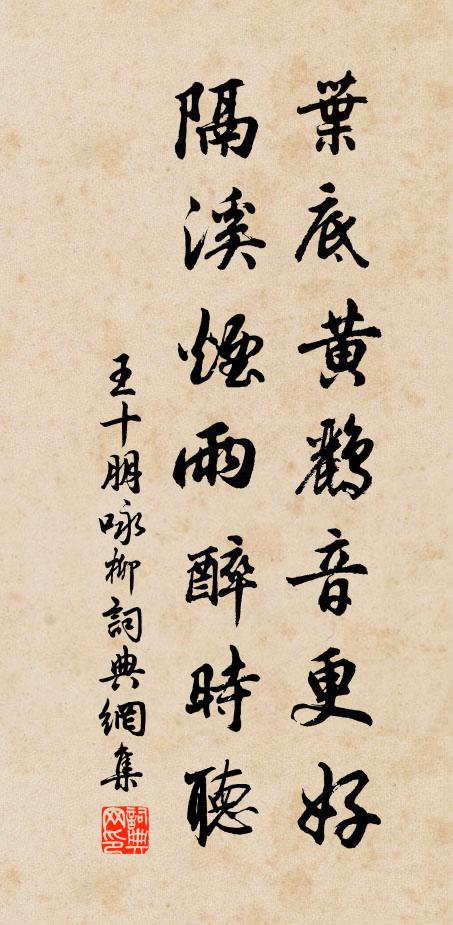 葉底黃鸝音更好
隔溪煙雨醉時聽
王十朋咏柳詞典網集
詞典網印